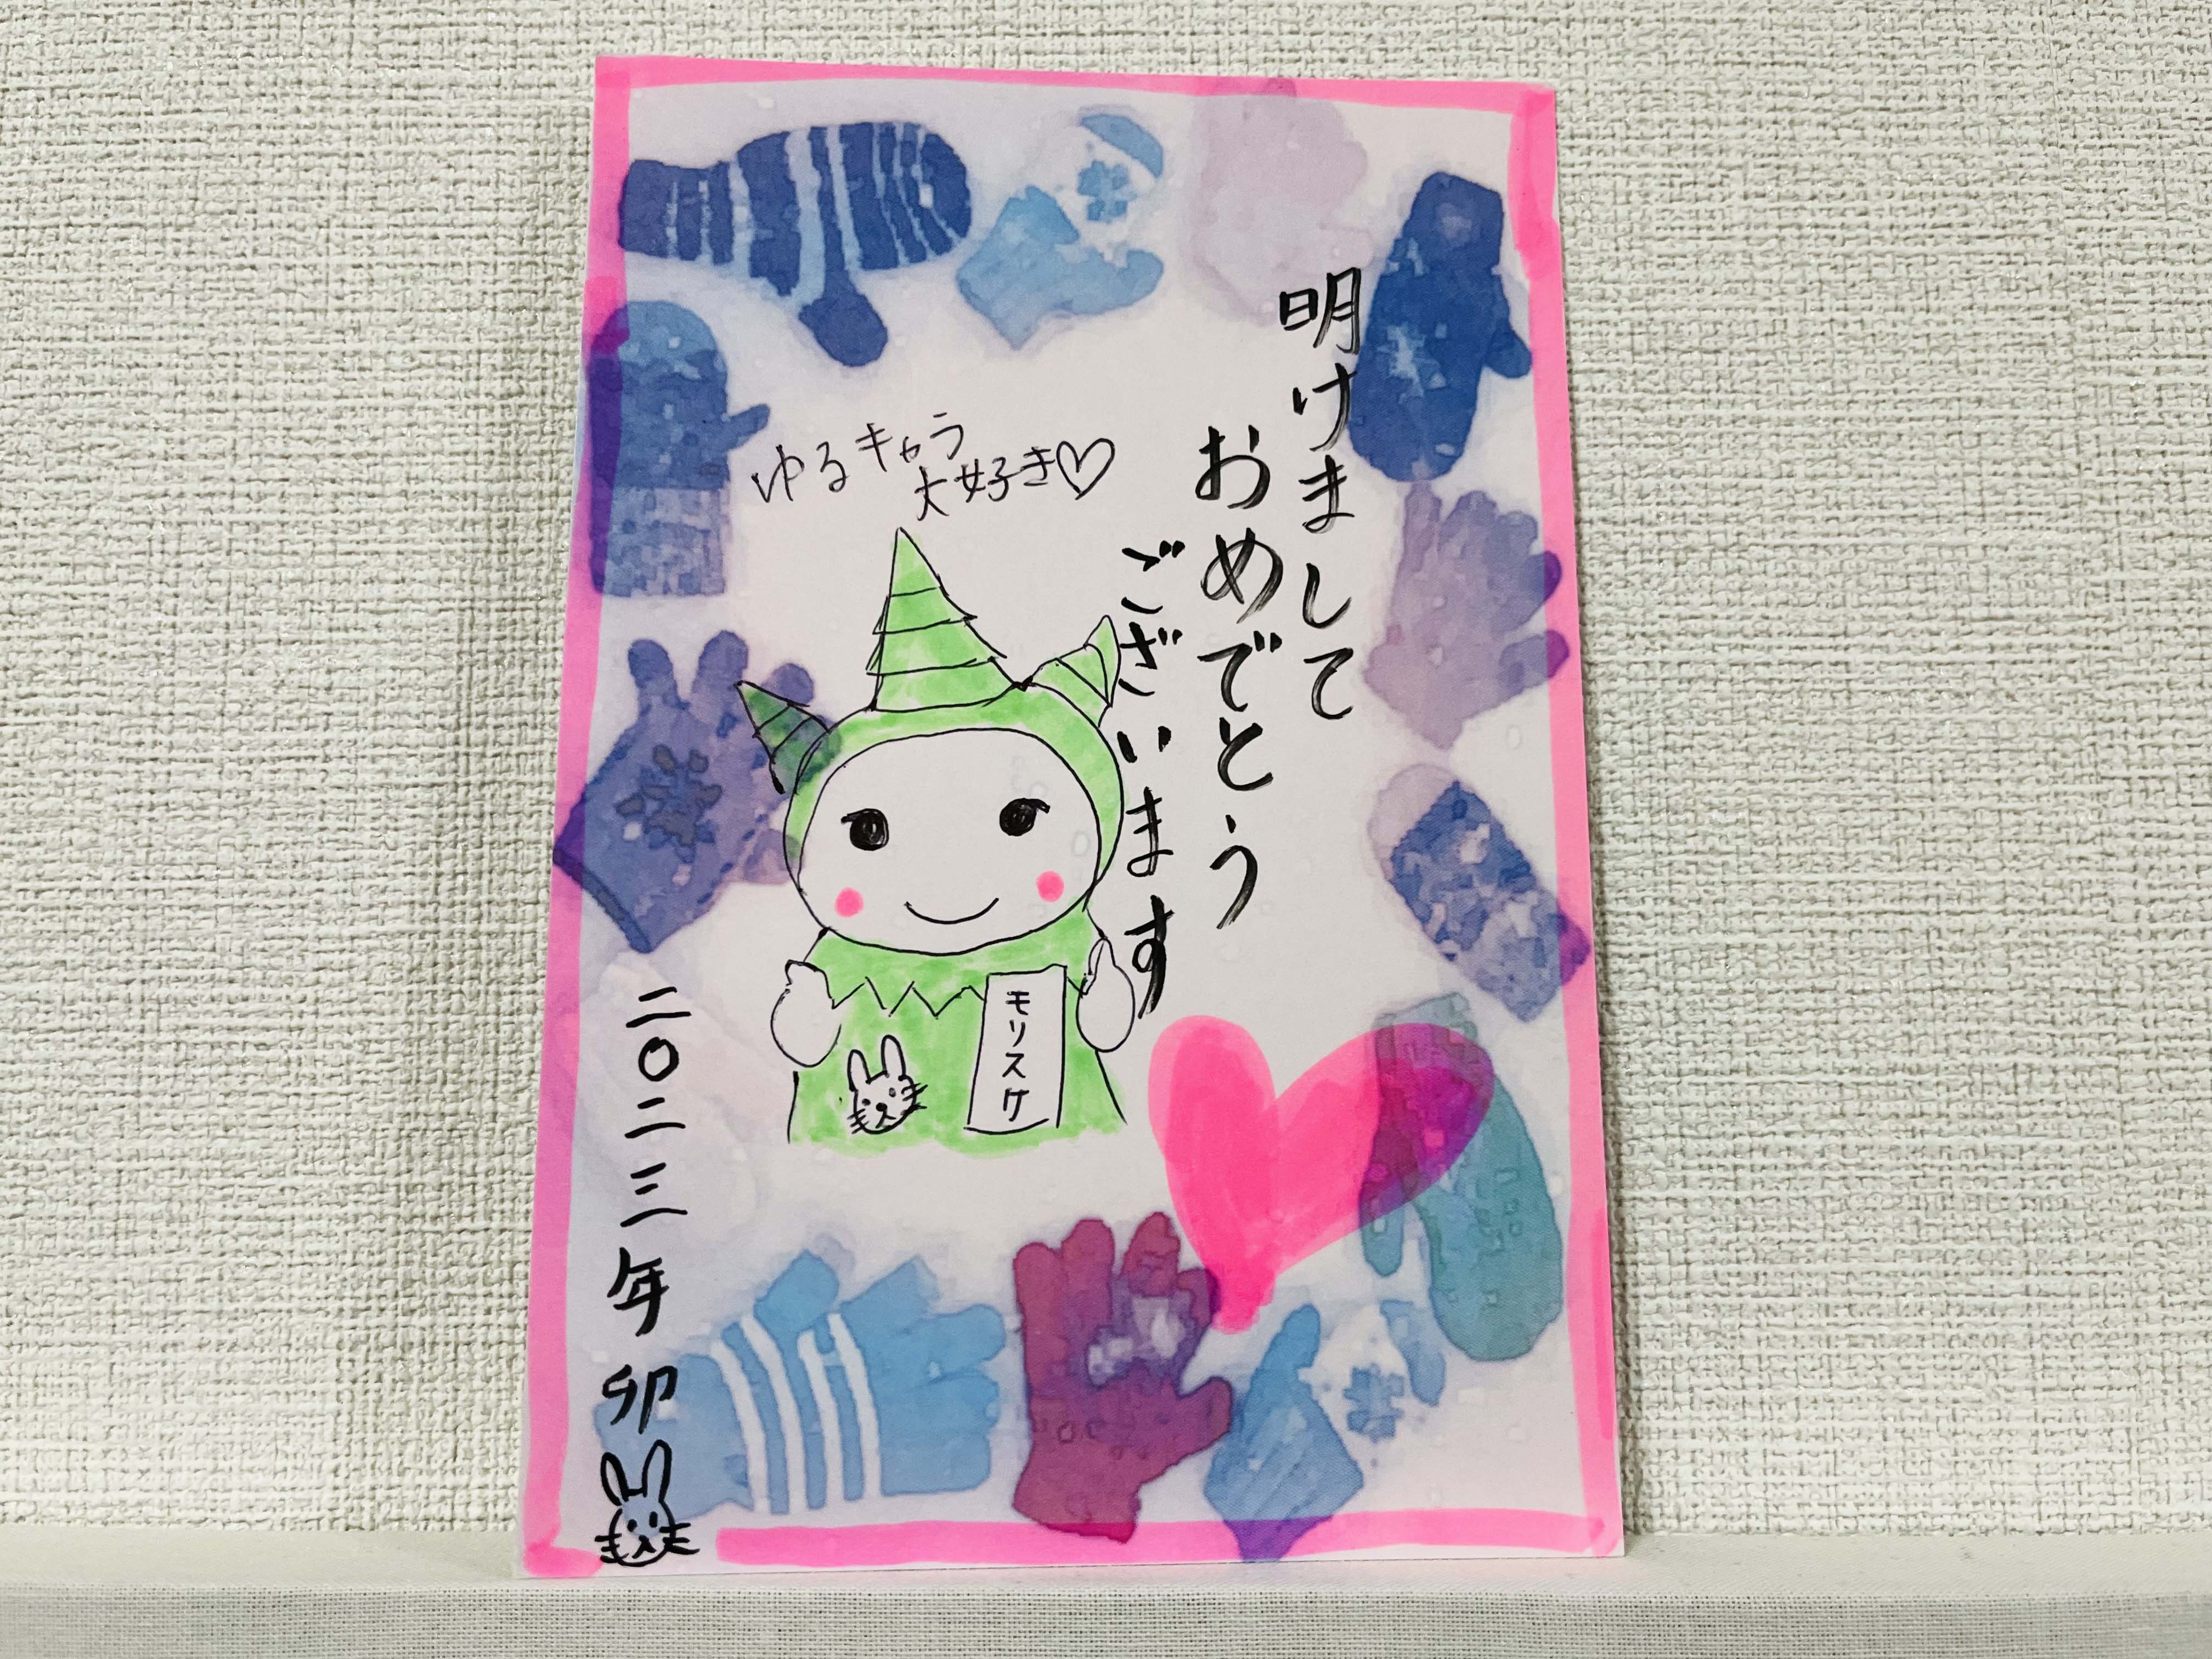 明けまして
おめでとう
ございます
ゆるキャラ
大好き♡
モリスケ
二〇二三年 卯